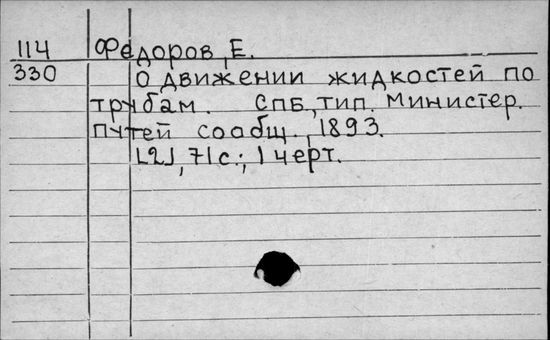 114 Федоров, Е.
330 О движении жидкостей по
трубам. СПБ, тип. Министер.
путей сообщ., 1893.
[2], 71 с.; 1 черт.